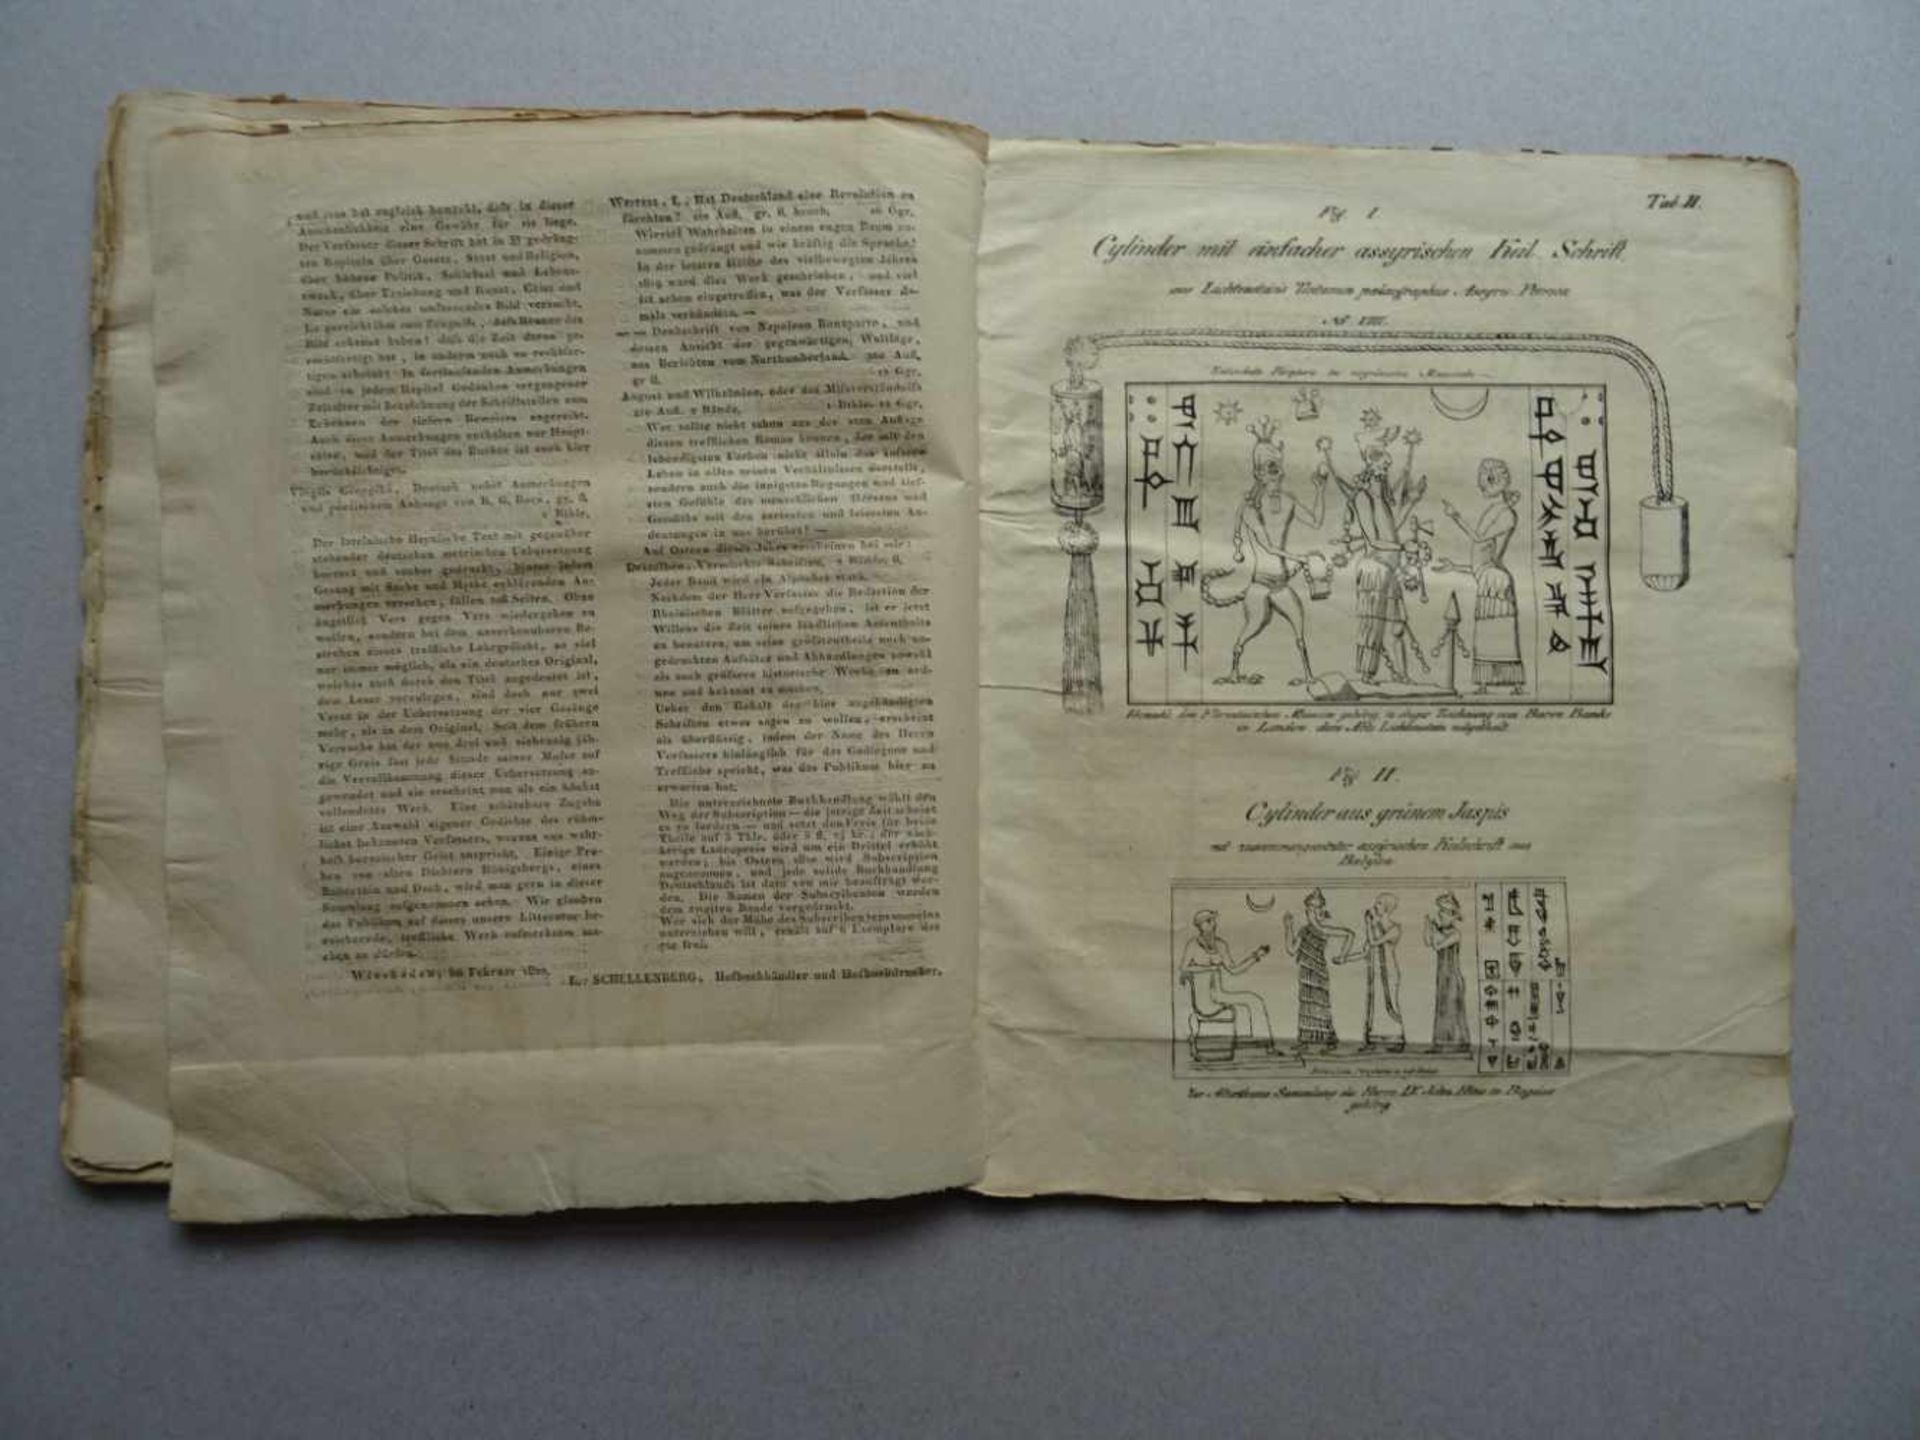 und man hat zugleich bemerkt, daſs in dieser
eine Gewähr für sie liege.
Der Verfasser dieser Schrift hat in gedräng-
ten Kapiteln über Gesetz, Staat und Religion,
über höhere Politik, Schicksal und Lebens-
zweck, über Erziehung und Kunst, Geist und
Natur ein solches umfassendes Bild versucht.
Es gereicht ihm zum Zeugniſs, daſs Kenner das
Bild erkannt haben! daſs die Zeit daran ge-
hat, in andern noch zu rechtfer-
tigen scheint! In fortlaufenden Anmerkungen
sind zu jedem Kapitel Gedanken vergangener
Zeitalter mit Bezeichnung der Schriftstellen zum
Erkennen der tiefern Beweise angereiht.
Auch diese Anmerkungen enthalten nur Haupt-
sätze, und der Titel des Buches ist auch hier
berücksichtiget.
Virgils Georgika, Deutsch nebst Anmerkungen
und poetischem Anhange von K. G. Bock, gr. 8.
1 Rthlr.
Der lateinische Heynische Text mit gegenüber
stehender deutschen metrischen Uebersetzung
korrect und sauber gedruckt, hinter jedem
Gesang mit Sache und Mythe erklärenden An-
merkungen versehen, füllen Seiten. Ohne
ängstlich Vers gegen Vers wiedergeben zu
wollen, sondern bei dem unverkennbaren Be-
streben dieses treffliche Lehrgedicht, so viel
nur immer möglich, als ein deutsches Original,
welches auch durch den Titel angedeutet ist,
dem Leser vorzulegen, sind doch nur zwei
Verse in der Uebersetzung der vier Gesänge
mehr, als in dem Original. Seit dem frühern
Versuche hat der nun drei und siebenzig jäh-
rige Greis fast jede Stunde seiner Muſse auf
die Vervollkommnung dieser Uebersetzung an-
gewendet und sie erscheint nun als ein höchst
vollendetes Werk. Eine schätzbare Zugabe
ist eine Auswahl eigener Gedichte des rühm-
lichst bekannten Verfassers, woraus uns wahr-
haft horazischer Geist anspricht. Einige Pro-
ben von alten Dichtern Königsbergs, eines
Roberthin und Dach, wird man gern in dieser
Sammlung aufgenommen sehen. Wir glauben
das Publikum auf dieses unsere Litteratur be-
reichernde, treffliche Werk aufmerksam ma-
chen zu dürfen.
Wiesbaden, im Februar
I., Hat Deutschland eine Revolution zu
fürchten? Aufl. gr. 8. brosch. Ggr.
Wieviel Wahrheiten in einem engen Raum zu-
sammen gedrängt und wie kräftig die Sprache!
In der letzten Hälfte des vielbewegten Jahres
1819 ward dies Werk geschrieben, und viel
ist schon eingetroffen, was der Verfasser da-
mals verkündete. —
— — Denkschrift von Napoleon Bonaparte, und
dessen Ansicht der gegenwärtigen Weltlage,
aus Berichten vom Northumberland. Aufl.
gr 8. Ggr.
August und Wilhelmine, oder das Miſsverständniſs
2te Aufl. 2 Bände. 1 Rthlr. Ggr.
Wer sollte nicht schon aus der 1sten Auflage
diesen trefflichen Roman kennen, der mit den
lebendigsten Farben nicht allein das äuſsere
Leben in allen seinen Verhältnissen darstellt,
sondern auch die innigsten Regungen und tief-
sten Gefühle des menschlichen Herzens und
Gemüths mit den zartesten und leisesten An-
deutungen in uns berührt! —
Auf Ostern dieses Jahres erscheinen bei mir:
Desselben, Vermischte Schriften, 2 Bände, 8.
Jeder Band wird ein Alphabet stark.
Nachdem der Herr Verfasser die Redaction der
Rheinischen Blätter aufgegeben, ist er jetzt
Willens die Zeit seines ländlichen Aufenthalts
zu benutzen, um seine gröſstentheils noch un-
gedruckten Aufsätze und Abhandlungen sowohl
als auch gröſsere historische Werke zu ord-
nen und bekannt zu machen.
Ueber den Gehalt der hier angekündigten
Schriften etwas sagen zu wollen, erscheint
als überflüssig, indem der Name des Herrn
Verfassers hinlänglich für das Gediegene und
Treffliche spricht, was das Publikum hier zu
erwarten hat.
Die unterzeichnete Buchhandlung wählt den
Weg der Subscription — die jetzige Zeit scheint
es zu fordern — und setzt den Preis für beide
Theile auf 3 Thlr. oder 5 fl. kr.; der nach-
herige Ladenpreis wird um ein Drittel erhöht
werden; bis Ostern wird Subscription
angenommen, und jede solide Buchhandlung
Deutschlands ist dazu von mir beauftragt wor-
den. Die Namen der Subscribenten werden
dem zweiten Bande vorgedruckt.
Wer sich der Mühe des Subscribentensammelns
unterziehen will, erhält auf 6 Exemplare das
7te frei.
L. SCHELLENBERG, Hofbuchhändler und Hofbuchdrucker.
Tab II.
Fig. I
Cylinder mit einfacher assyrischen Keil Schrift
aus Lichtensteins Tentamen palaeographiae Assyrio Persicae
N° VIII.
Fig II.
Cylinder aus grünem Jaspis
mit zusammengesetzter assyrischen Keilschrift aus
Babylon
Zur Alterthums Sammlung des Herrn Dr John Hine in Bagdad
gehörig